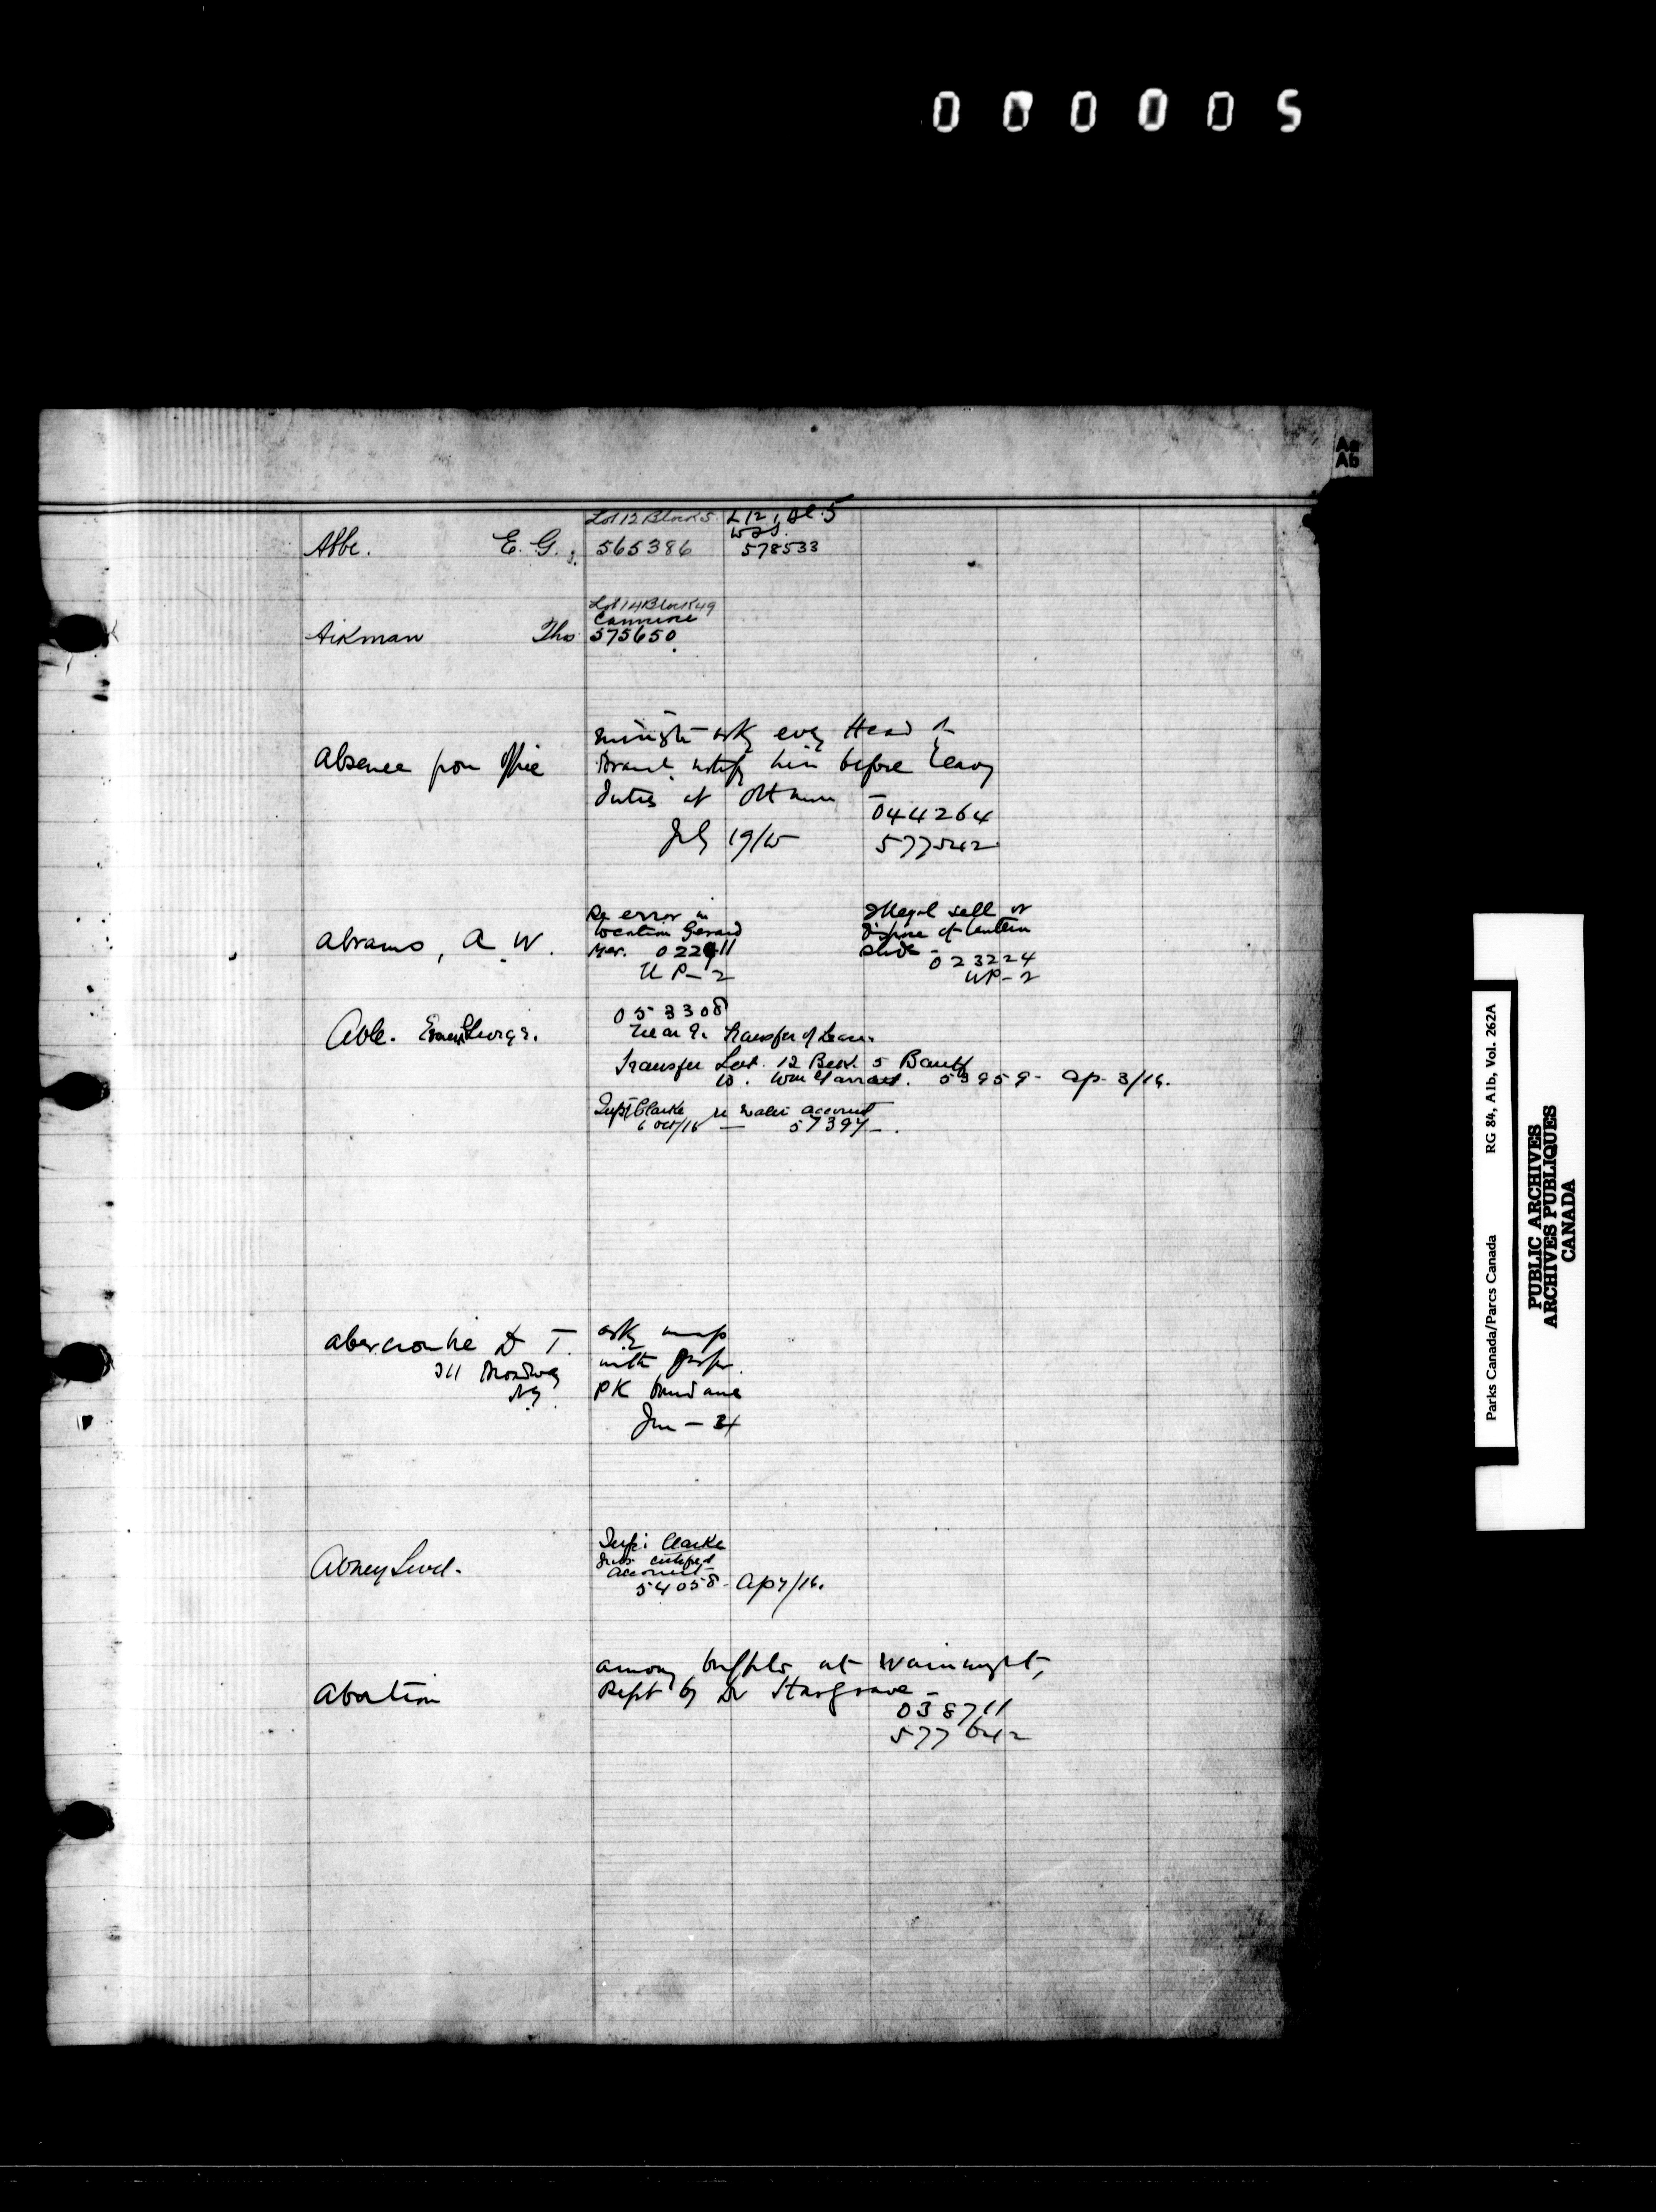 000005
Aa
Ab
Lot 12 Block 5. L 12, Bl. 5
Abbe. E. G. 565386 578533
Lot 14 Block 49
Canmore
Aikman Tho 575650
Absence from Office
Minister asks every Head
Branch notify him before leaving
duties at Ottawa
044264
July 19/15 577542
Abrams, A. W.
Re error in
location Gerard
Mer. 022911
U P-2
Illegal sell or
dispose of lantern
slide 023224
UP-2
Able. George.
053308
Transfer of Lease
Transfer Lot. 12 Block 5 Banff
to. Wm 53959- Ap. 3/16.
Supt Clarke re water account
6 Oct/15 — 57394-.
Abercrombie D T.
311 Broadway
N.Y.
asks map
with
PK
Jun - 24
Abney Level.
Supt. Clarke
account
54058- Ap 7/16.
Abortion
among buffalo at Wainwright,
Rept by Dr Hargrave -
038711
577642
Parks Canada/Parcs Canada RG 84, A1b, Vol. 262A
PUBLIC ARCHIVES
ARCHIVES PUBLIQUES
CANADA